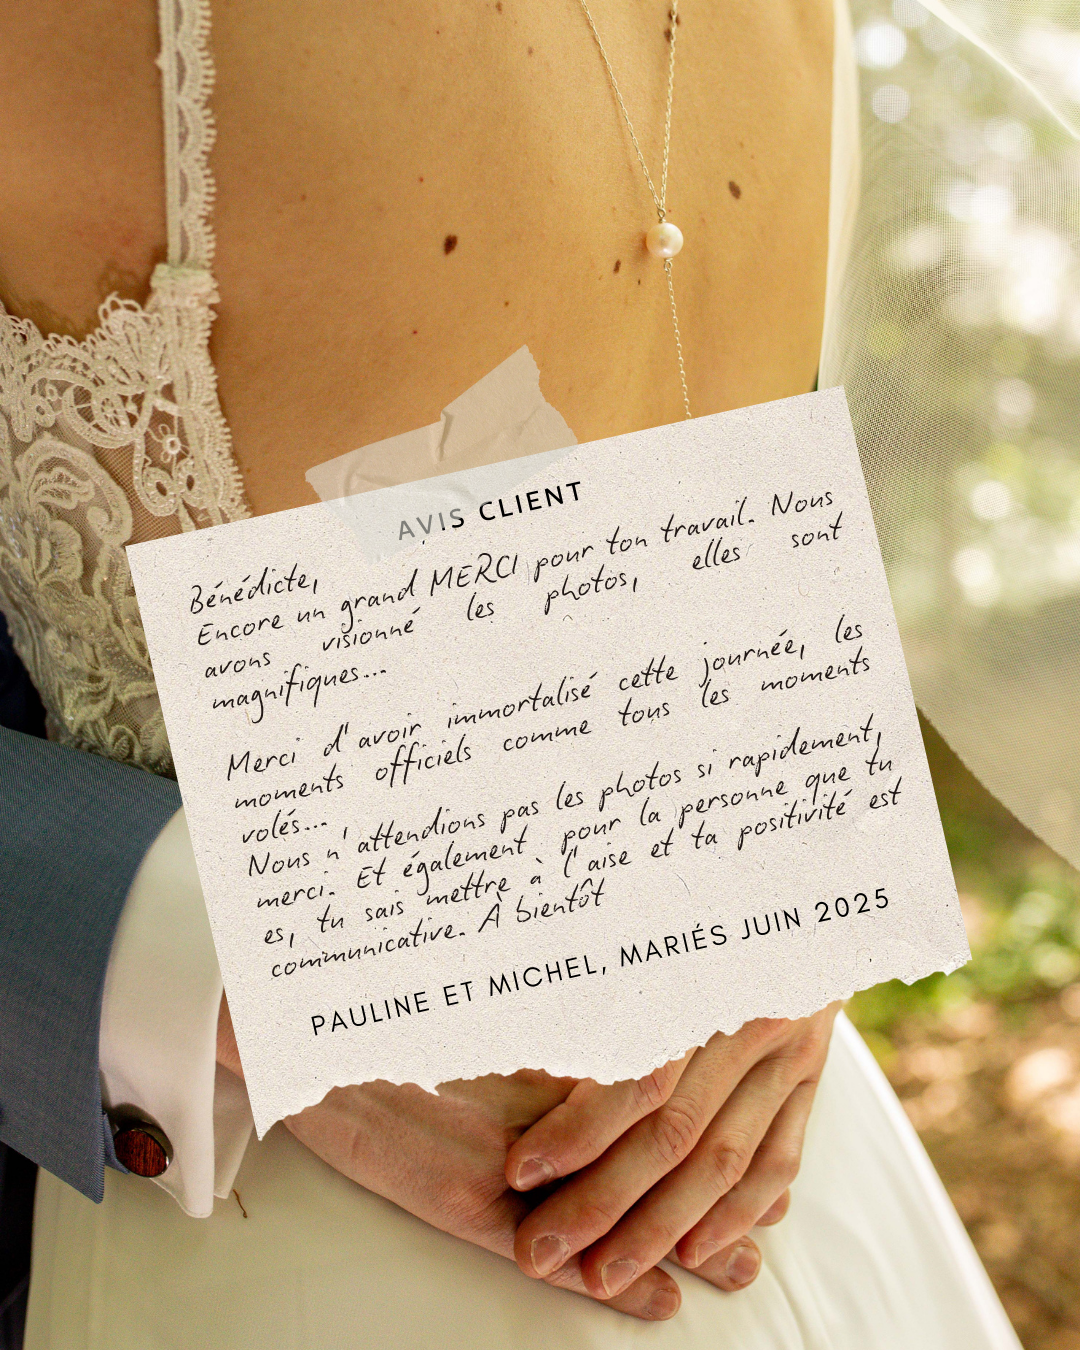 AVIS CLIENT
Bénédicte,
Encore un grand MERCI pour ton travail. Nous
avons visionné les photos, elles sont
magnifiques...
Merci d'avoir immortalisé cette journée, les
moments officiels comme tous les moments
volés...
Nous n'attendions pas les photos si rapidement,
merci. Et également pour la personne que tu
es, tu sais mettre à l'aise et ta positivité est
communicative. À bientôt
PAULINE ET MICHEL, MARIÉS JUIN 2025